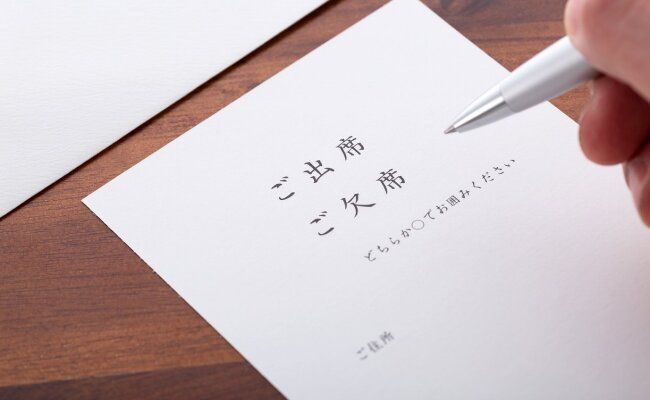 ご出席
ご欠席
どちらか〇でお囲みください
ご住所